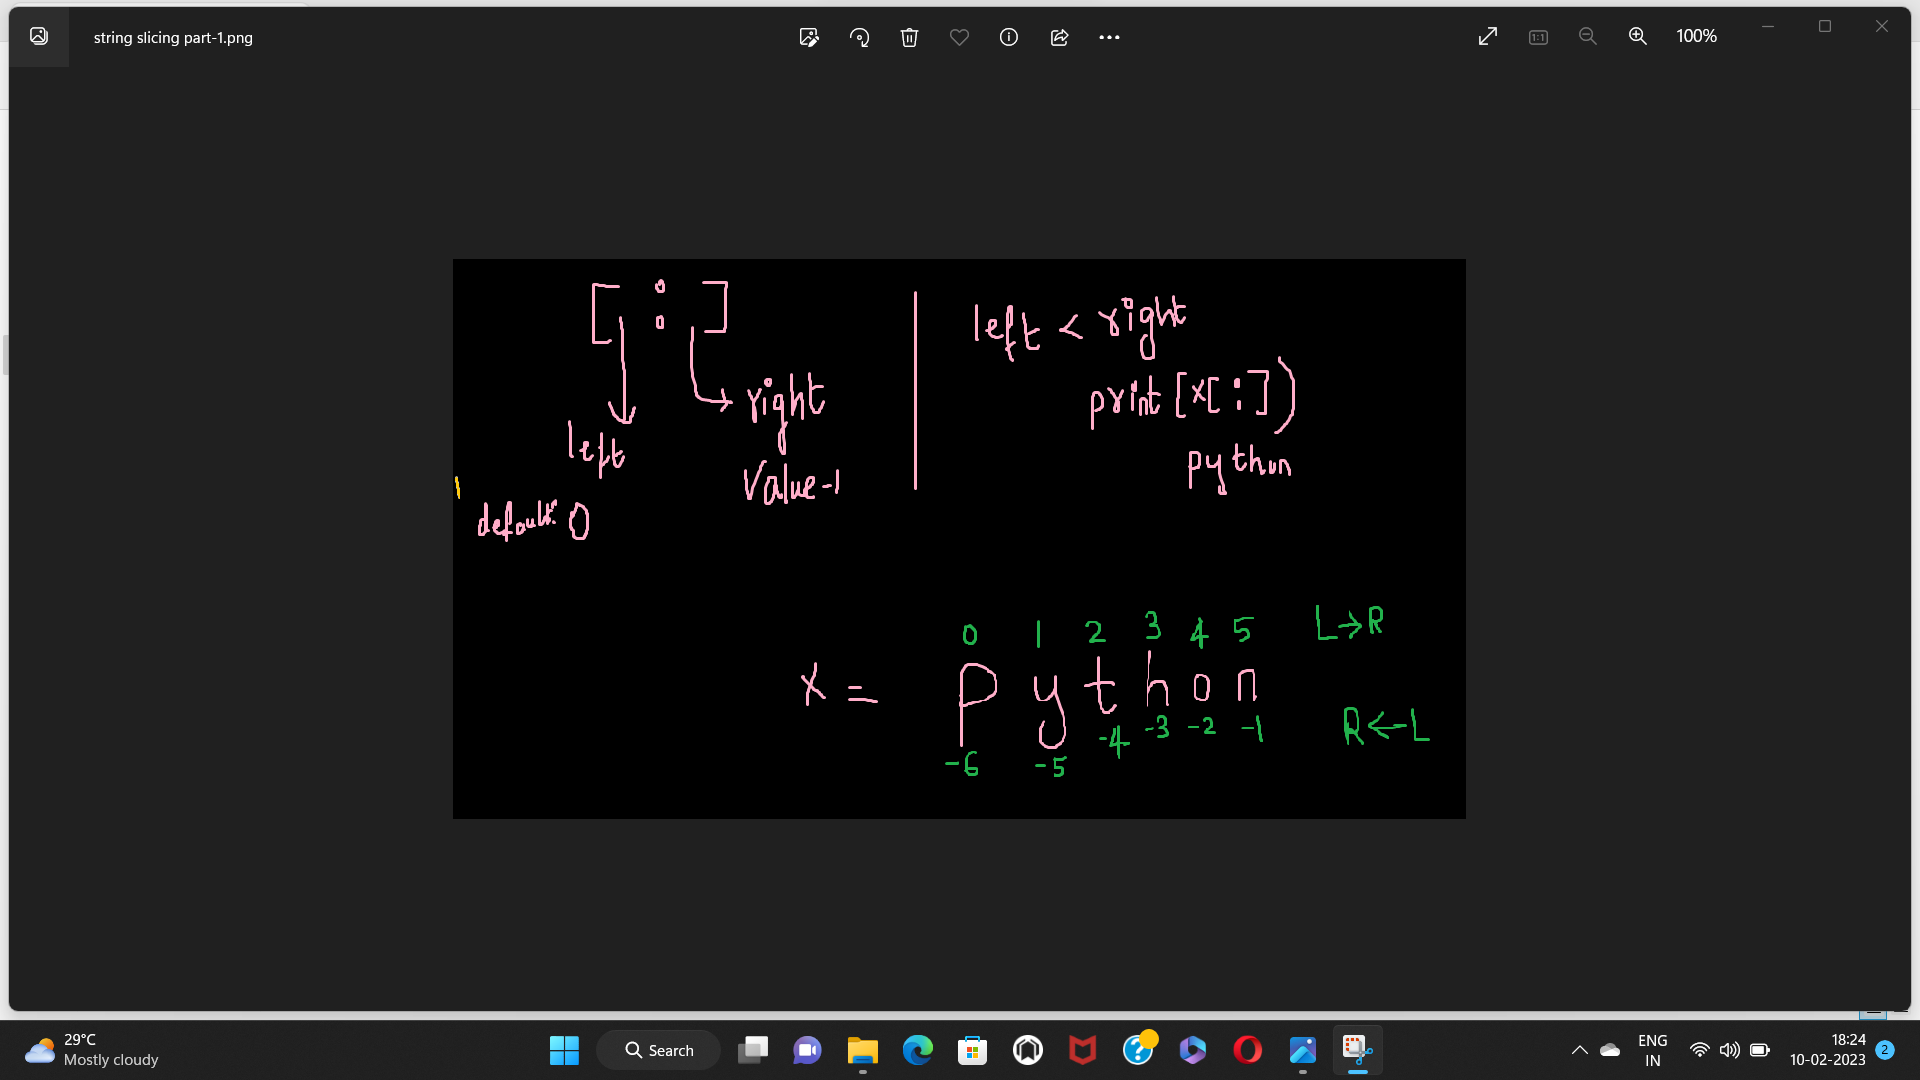 string slicing part-1.png
100%
[ : ]
left
right
Value-1
default: 0
left < right
print [x[:])
python
0 1 2 3 4 5 L→R
x = p y t h o n
-6 -5 -4 -3 -2 -1 R←L
29°C
Mostly cloudy
Search
ENG
IN
18:24
10-02-2023
2